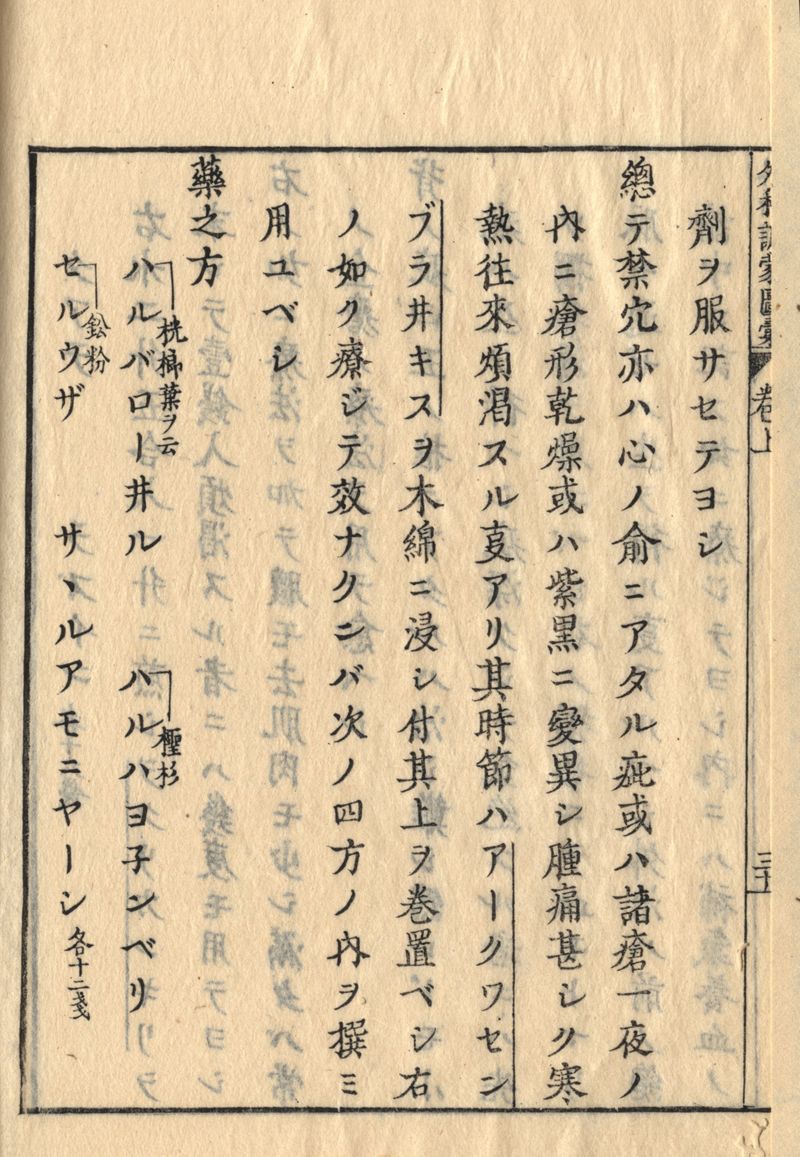 外科訓蒙圖彙 卷上
劑ヲ服サセテヨシ
總テ禁穴亦ハ心ノ俞ニアタル疵或ハ諸瘡一夜ノ
内ニ瘡形乾燥或ハ紫黒ニ變異シ腫痛甚シク寒
熱往來煩渇スル㕝アリ其時節ハアークワセン
ブラ井キスヲ木綿ニ浸シ付其上ヲ巻置ベシ右
ノ如ク療ジテ效ナクンバ次ノ四方ノ内ヲ撰ミ
用ユベシ
藥之方
ハルバロー井ル 桄榔葉ヲ云 ハルハヨ子ンベリ 檉杉
セルウザ 鉛粉 サヽルアモニヤーシ 各十二戔